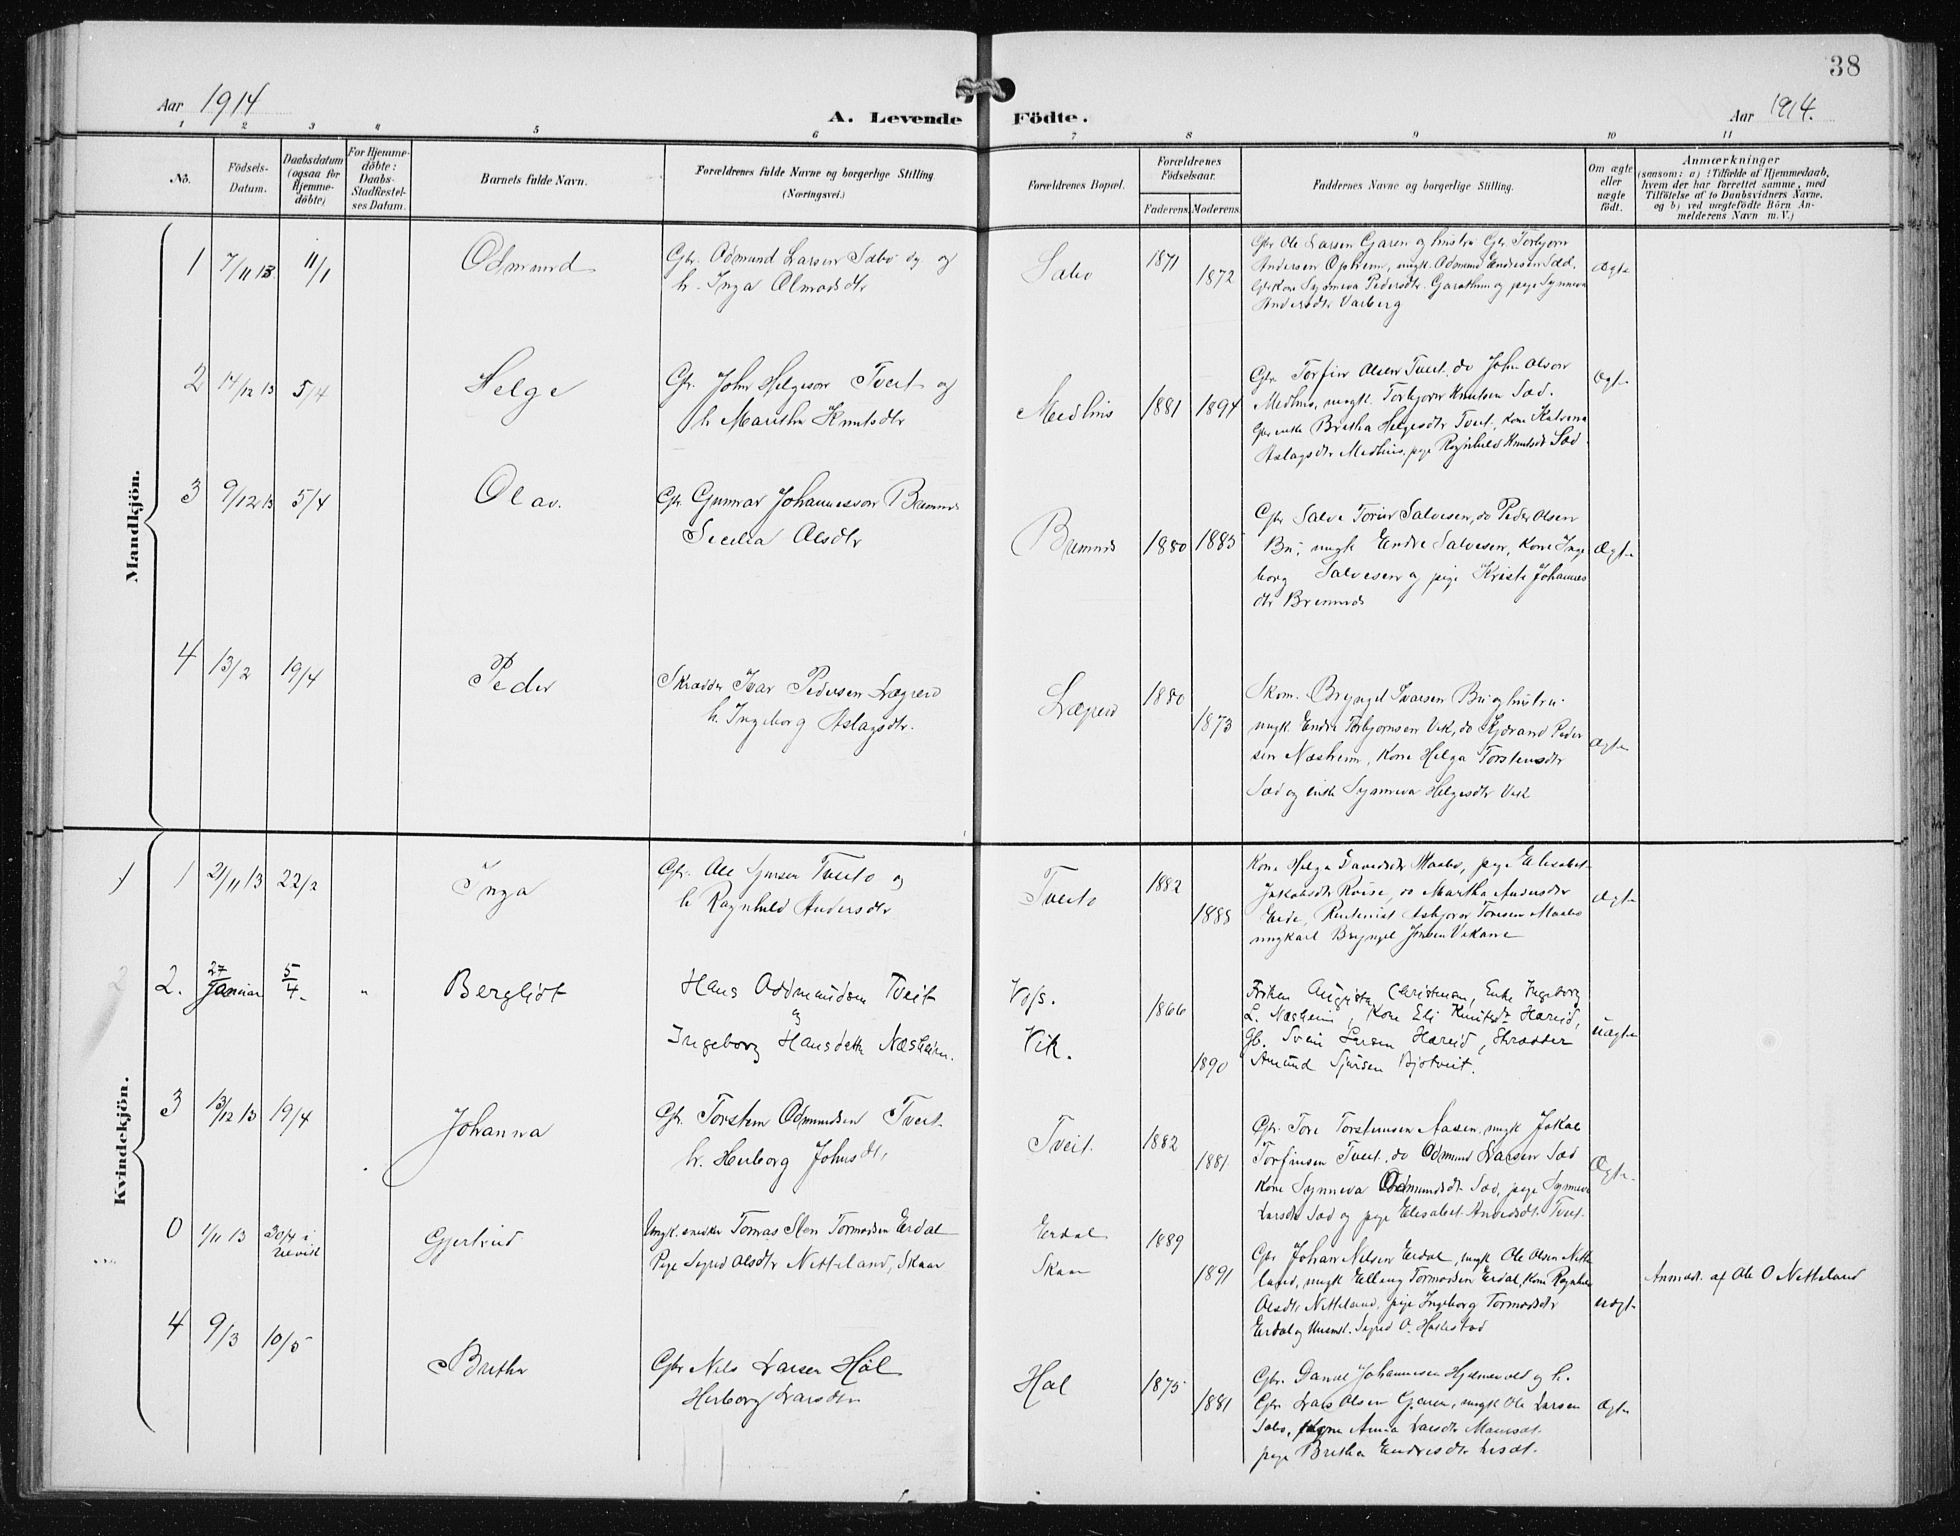 38
Aar 1914
A. Levende Födte.
Aar 1914.
1 2 3 4 5 6 7 8 9 10 11
No.
Födsels-
Datum.
Daabsdatum
(ogsaa for
Hjemme-
döbte)
For Hjemme-
döbte:
Daabs-
Stadfæstel-
ses Datum.
Barnets fulde Navn.
Forældrenes fulde Navne og borgerlige Stilling
(Næringsvei.)
Forældrenes Bopæl.
Forældrenes
Födselsaar.
Faderens. Moderens.
Faddernes Navne og borgerlig Stilling.
Om ægte
eller
uægte
födt.
Anmærkninger
(saasom: a) i Tilfælde af Hjemmedaab,
hvem der har forrettet samme, med
Tilföielse af to Daabsvidners Navne,
og b) ved uægtefödte Börn An-
melderens Navn m. V.)
Mandkjön.
1 7/11 13 11/1 Odmund
Gbr. Odmund Larsen Sæbø og
h. Inga Olmodsdtr
Sæbø 1871 1872
Gbr Ole Larsen Garen og hustru Gbr Torbjørn
Andersen Opheim, ungk. Odmund Endresen Sæd,
Gbrkone Synneva Pedersdtr. Garathun og pige Synneva
Andersdtr Varberg
Ægte
2 14/12 13 5/4 Helge
Gbr. John Helgeson Tveit og
h Maritha Knutsdtr
Medhus 1881 1894
Gbr Torfin Olsen Tveit, do John Olson
Medhus, ungk. Torbjørn Knutsen Sæd.
Gbr enke Britha Helgesdtr Tveit, kone Katrina
Aslagsdtr Medhus, pige Ragnhild Knutsdt Sæd
Ægte
3 9/12 13 5/4 Olav.
Gbr Gunnar Johannesson Bremnes
Secelia Olsdtr
Bremnes 1880 1885
Gbr Salve Torin Salvesen, do Peder Olsen
Bu, ungk Endre Salvesen, Kone Inge
borg Salvesen og pige Kristi Johannes
dtr Bremnes
Ægte
4 13/2 19/4 Peder
Skrædder Ivar Pedersen Lægreid
h. Ingeborg Aslagsdtr.
Lægreid 1880 1873
Skom. Bryngel Ivarsen Bu og hustru
ungk. Endre Torbjørnsen Vik, do Kjærand Peder
sen Næsheim, Kone Helga Torsteinsdtr
Sæd og enke Synneva Helgesdtr Vik
Ægte
Kvindekjön.
1 1 21/11 13 22/2 Inga
Gbr. Ole Sjursen Tveito og
h Ragnhild Andersdtr
Tveito 1882 1888
Kone Helga Davidsdtr Maabø, pige Elisabet
Jakobsdtr Røise, do Martha Andersdtr
Eide, Rentenist Asbjørn Toresen Maabø
ungkarl Bryngel Jonsen Vikane
Ægte
2 2. 27/Januar 5/4. " Bergliot
Hans Oddmundsen Tveit
og
Ingeborg Hansdatter Næsheim.
Voss.
Vik.
1866 1890
Frøken Augusta Christensen, Enke Ingeborg
L. Næsheim, Kone Eli Knutsdt Hareid,
Gb. Svein Larsen Hareid, Skrædder
Amund Sjursen Bjotveit.
uægte
3 13/12 13 19/4 Johanna
Gbr. Torstein Odmundsen Tveit
h. Herborg Johnsdt,
Tveit 1882 1881
Gbr. Tore Torsteinsen Aasen, ungk Jakob
Torfinsen Tveit, do Odmund Larsen Sæd
Kone Synneva Odmundsdt Sæd, pige Synneva
Larsdt Sæd og pige Elisabet Andersdt. Tveit.
Ægte.
0 1/11 13 20/4 i
Ulvik
Gjertrud
Ungk. snedker Tomas Sten Tormodsen Erdal
Pige Sigrid Olsdtr Netteland, Skaar
Erdal
Skaar
1889 1891
Gbr Johan Nilsen Erdal, ungk Ole Olsen Nette
land, ungk Elling Tormodsen Erdal, kone Ragnhild
Olsdtr Netteland, pige Ingeborg Tormodsdtr
Erdal og Husmst. Sigrid O. Hallestad
uægte
Anmeldt af Ole O Netteland
4 9/3 10/5 Britha
Gbr Nils Larsen Høl
Herborg Larsdtr
Høl 1875 1881
Gbr. Daniel Johannesen Hjelmevold og h.
Gbr. Lars Olsen Garen, ungk Ole Larsen
Sæbø, Anna Larsdtr
pige Britha Endresdtr
Ægte